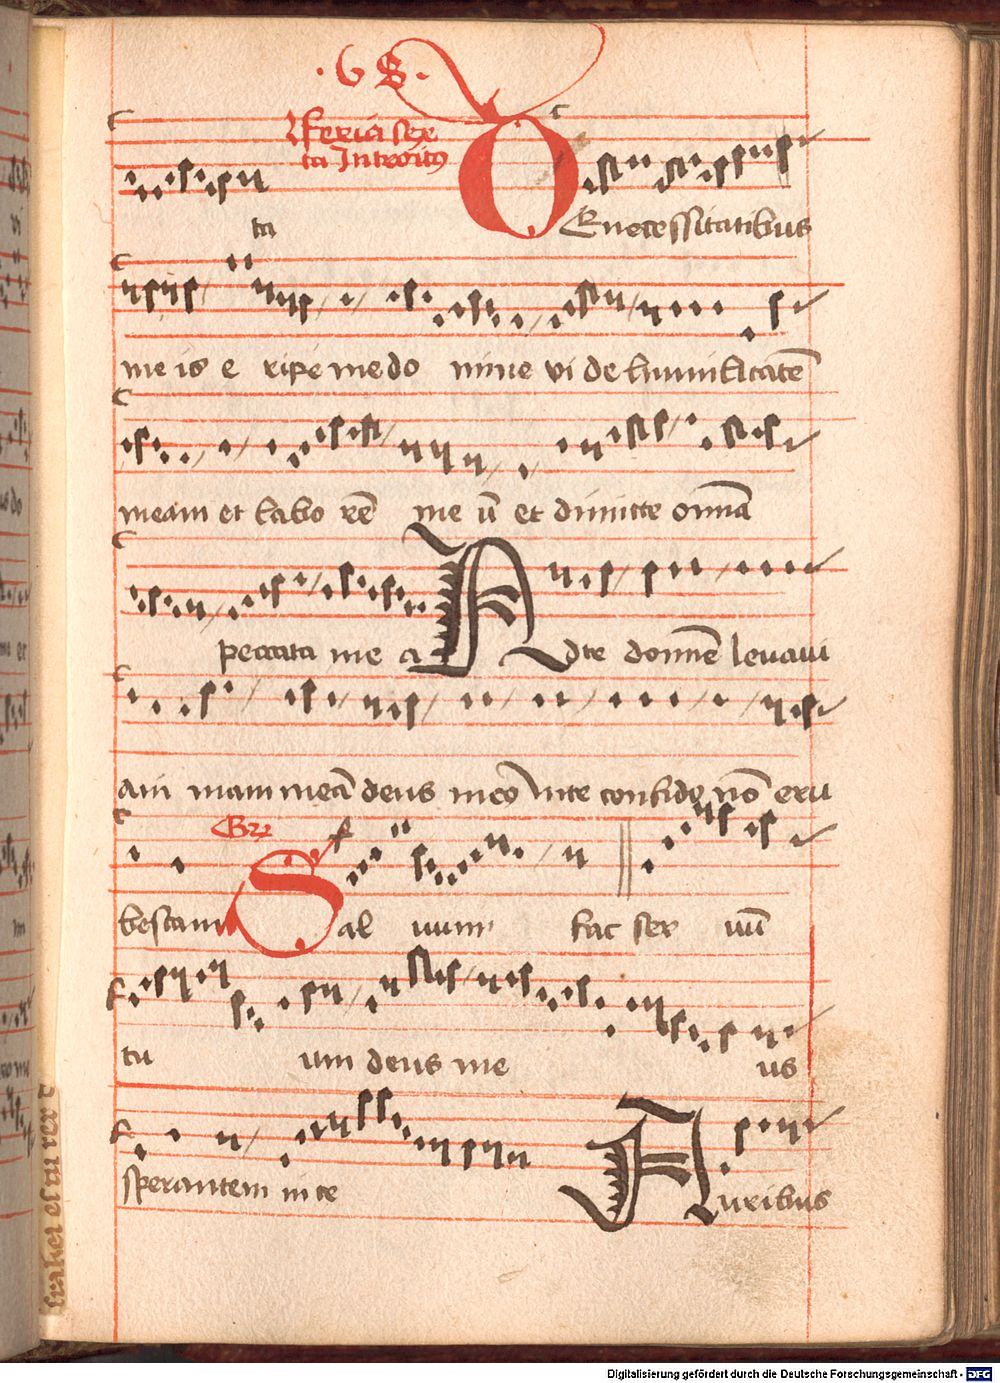 · 6 8 ·
Feria sex
ta Introitus
ta DE necessitatibus
me is e ripe me do mine vi de humilitatē
meam et labo rē me ū et dimitte omnia
peccata me a Ad te domē levavi
am mam meā deus meo In te confido nō eru
bescam Gr Sal uum fac ser uū
tu um deus me us
sperantem in te Auribus
Digitalisierung gefördert durch die Deutsche Forschungsgemeinschaft - DFG